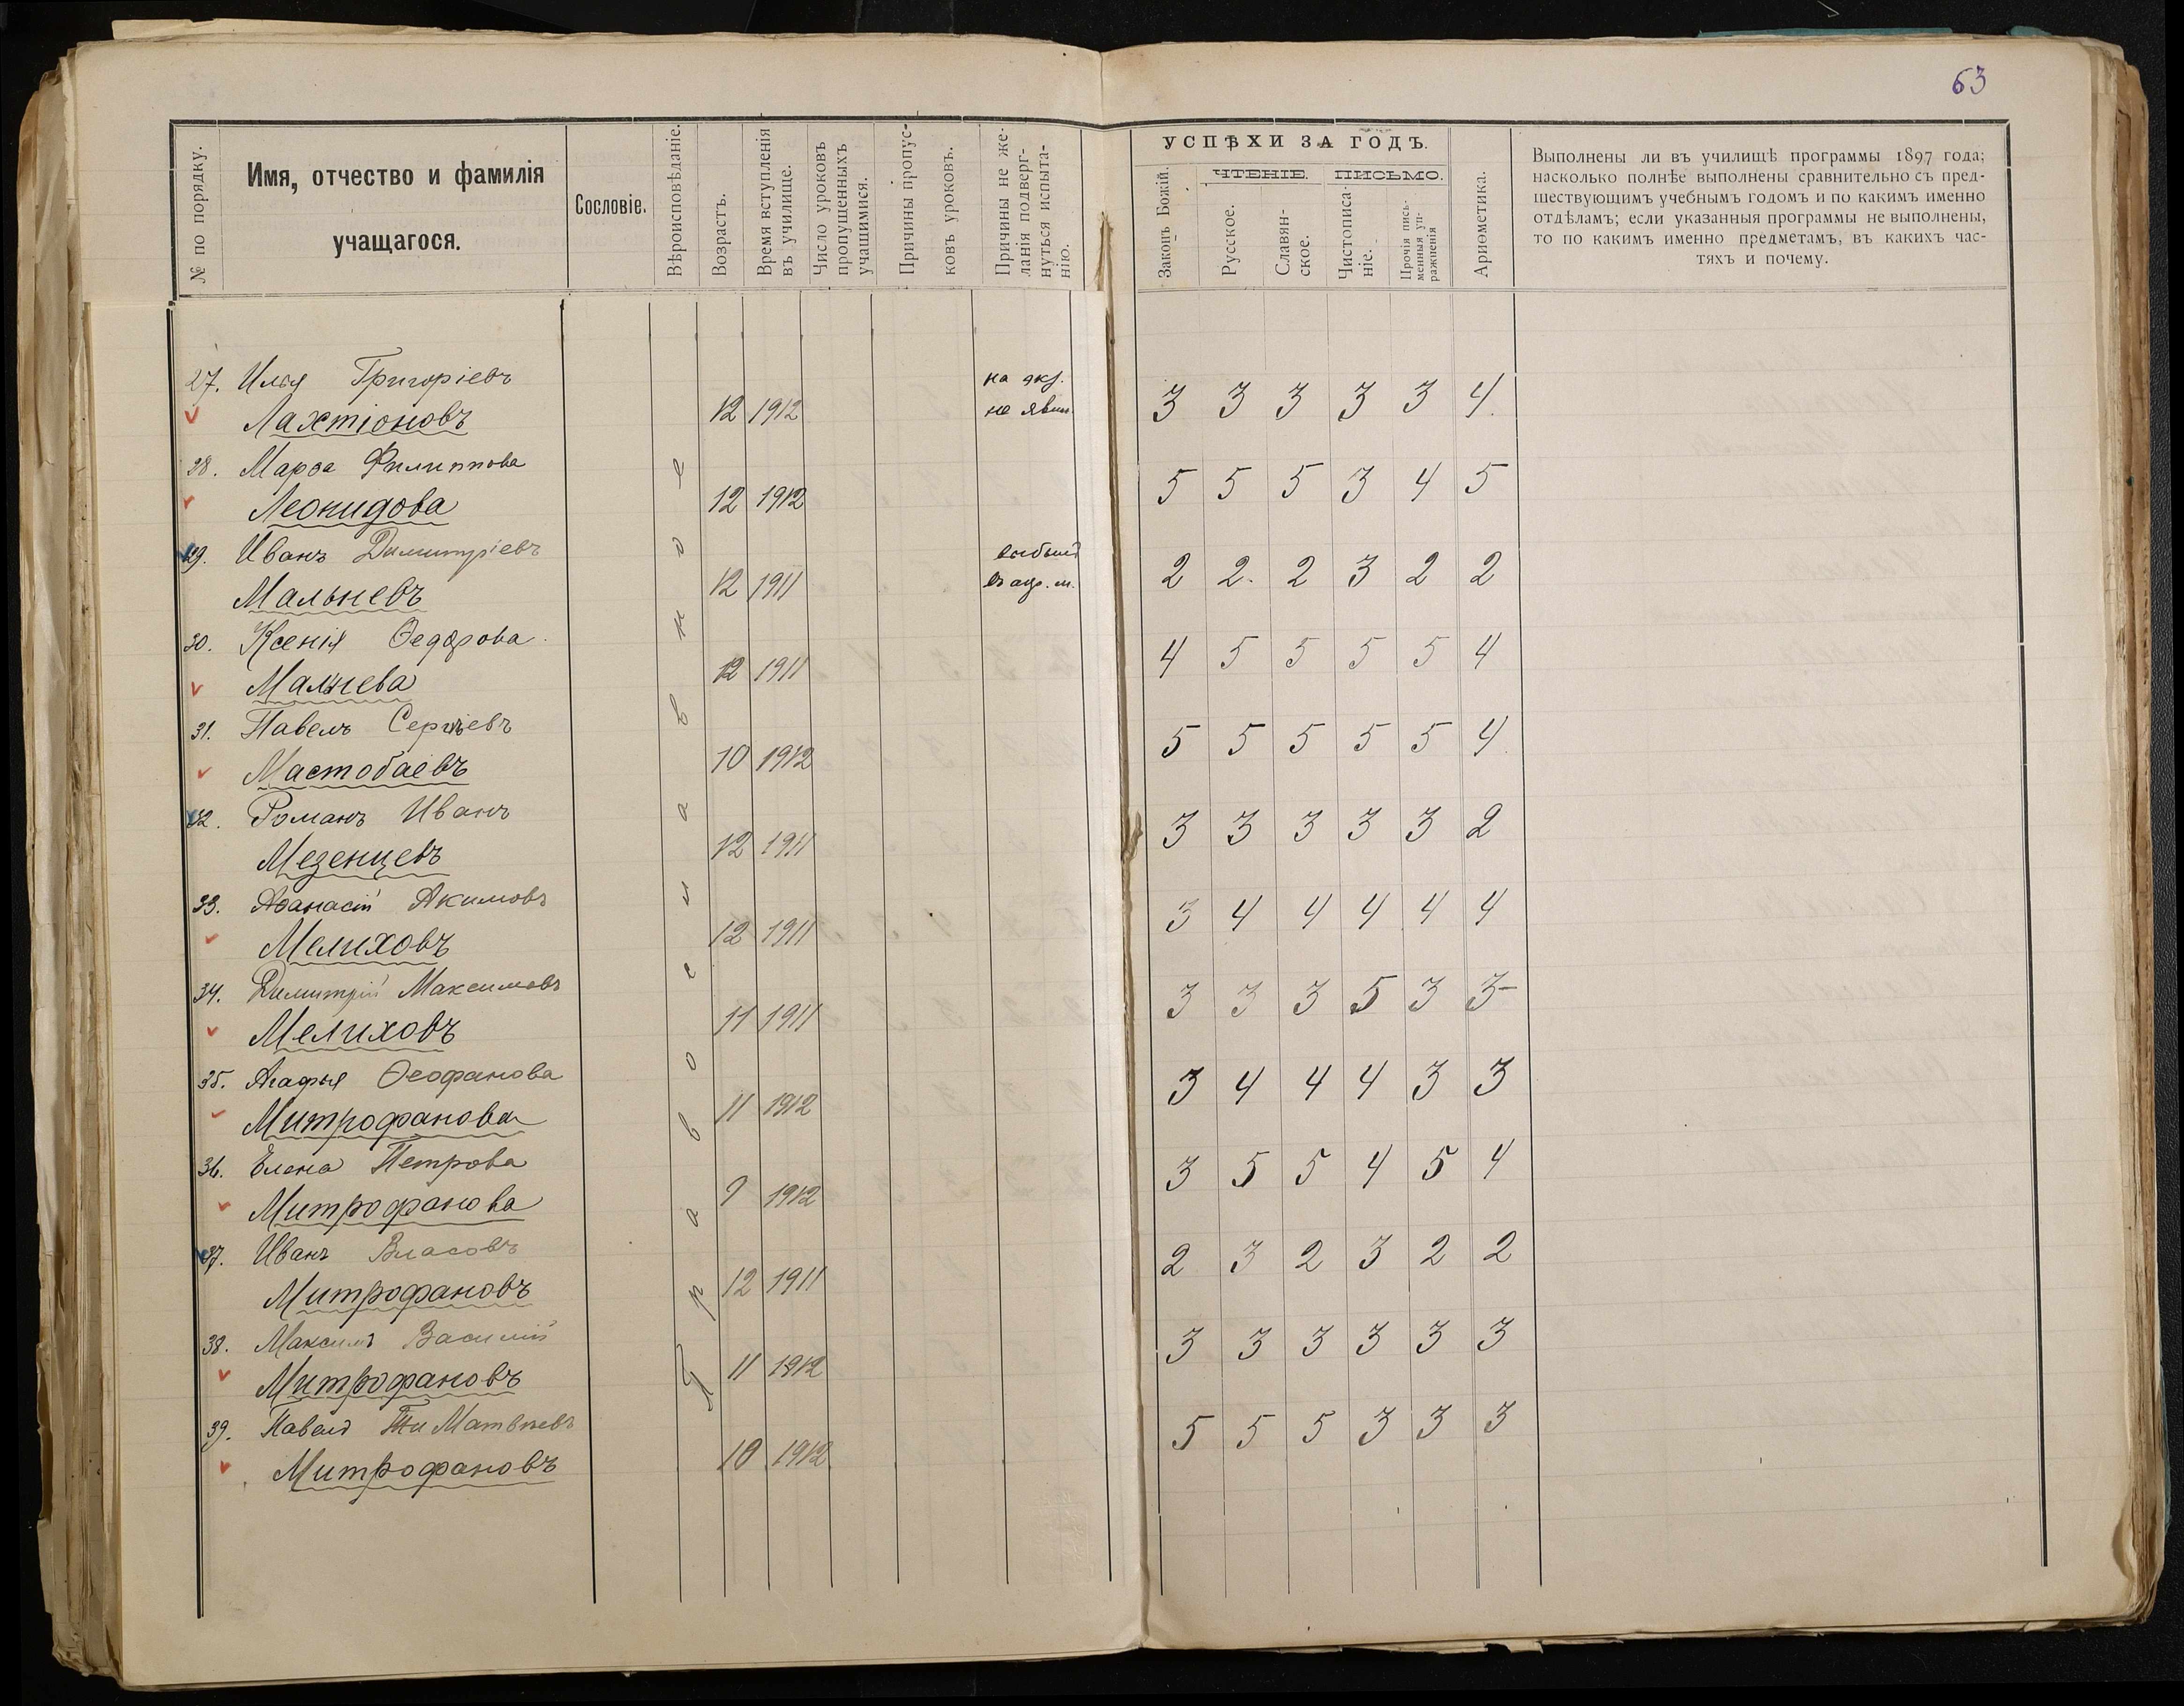 63
№ по порядку.
Имя, отчество и фамилія
учащагося.
Сословіе.
Вѣроисповѣданіе.
Возрастъ.
Время вступленія
въ училище.
Число уроковъ
пропущенныхъ
учащимися.
Причины пропус-
ковъ уроковъ.
Причины не же-
ланія подверг-
нуться испыта-
нію.
УСПѢХИ ЗА ГОДЪ.
Законъ Божій.
ЧТЕНІЕ.
Русское.
Славян-
ское.
ПИСЬМО.
Чистописа-
ніе.
Прочія пись-
менныя уп-
ражненія
Ариѳметика.
Выполнены ли въ училищѣ программы 1897 года;
насколько полнѣе выполнены сравнительно съ пред-
шествующимъ учебнымъ годомъ и по какимъ именно
отдѣламъ; если указанныя программы не выполнены,
то по какимъ именно предметамъ, въ какихъ час-
тяхъ и почему.
Православное
27. Илья Григоріевъ на экз.
Лахтіоновъ 12 1912 не явил. 3 3 3 3 3 4.
28. Марѳа Филиппова
Леонидова 12 1912 5 5 5 3 4 5
29. Иванъ Димитріевъ выбылъ
Мальневъ 12 1911 2 2. 2 3 2 2
30. Ксенія Ѳедорова
12 1911 4 5 5 5 5 4
31. Павелъ Сергѣевъ
Мастобаевъ 10 1912 5 5 5 5 5 4
32. Романъ Иванъ
Мезенцевъ 12 1911 3 3 3 3 3 2
33. Аѳанасій Акимовъ
Мелиховъ 12 1911 3 4 4 4 4 4
34. Димитрій Максимовъ
Мелиховъ 11 1911 3 3 3 5 3 3-
35. Агафья Ѳеофанова
Митрофанова 11 1912 3 4 4 4 3 3
36. Елена Петрова
Митрофанова 9 1912 3 5 5 4 5 4
37. Иванъ Власовъ
Митрофановъ 12 1911 2 3 2 3 2 2
38. Максимъ Василій
Митрофановъ 11 1912 3 3 3 3 3 3
39. Павелъ Матвѣевъ
Митрофановъ 10 1912 5 5 5 3 3 3